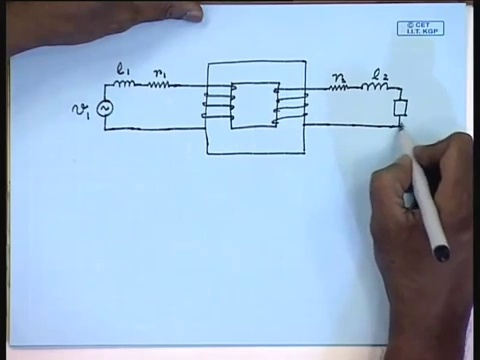 © CET
I.I.T. KGP
l₁ r₁ r₂ l₂
v₁